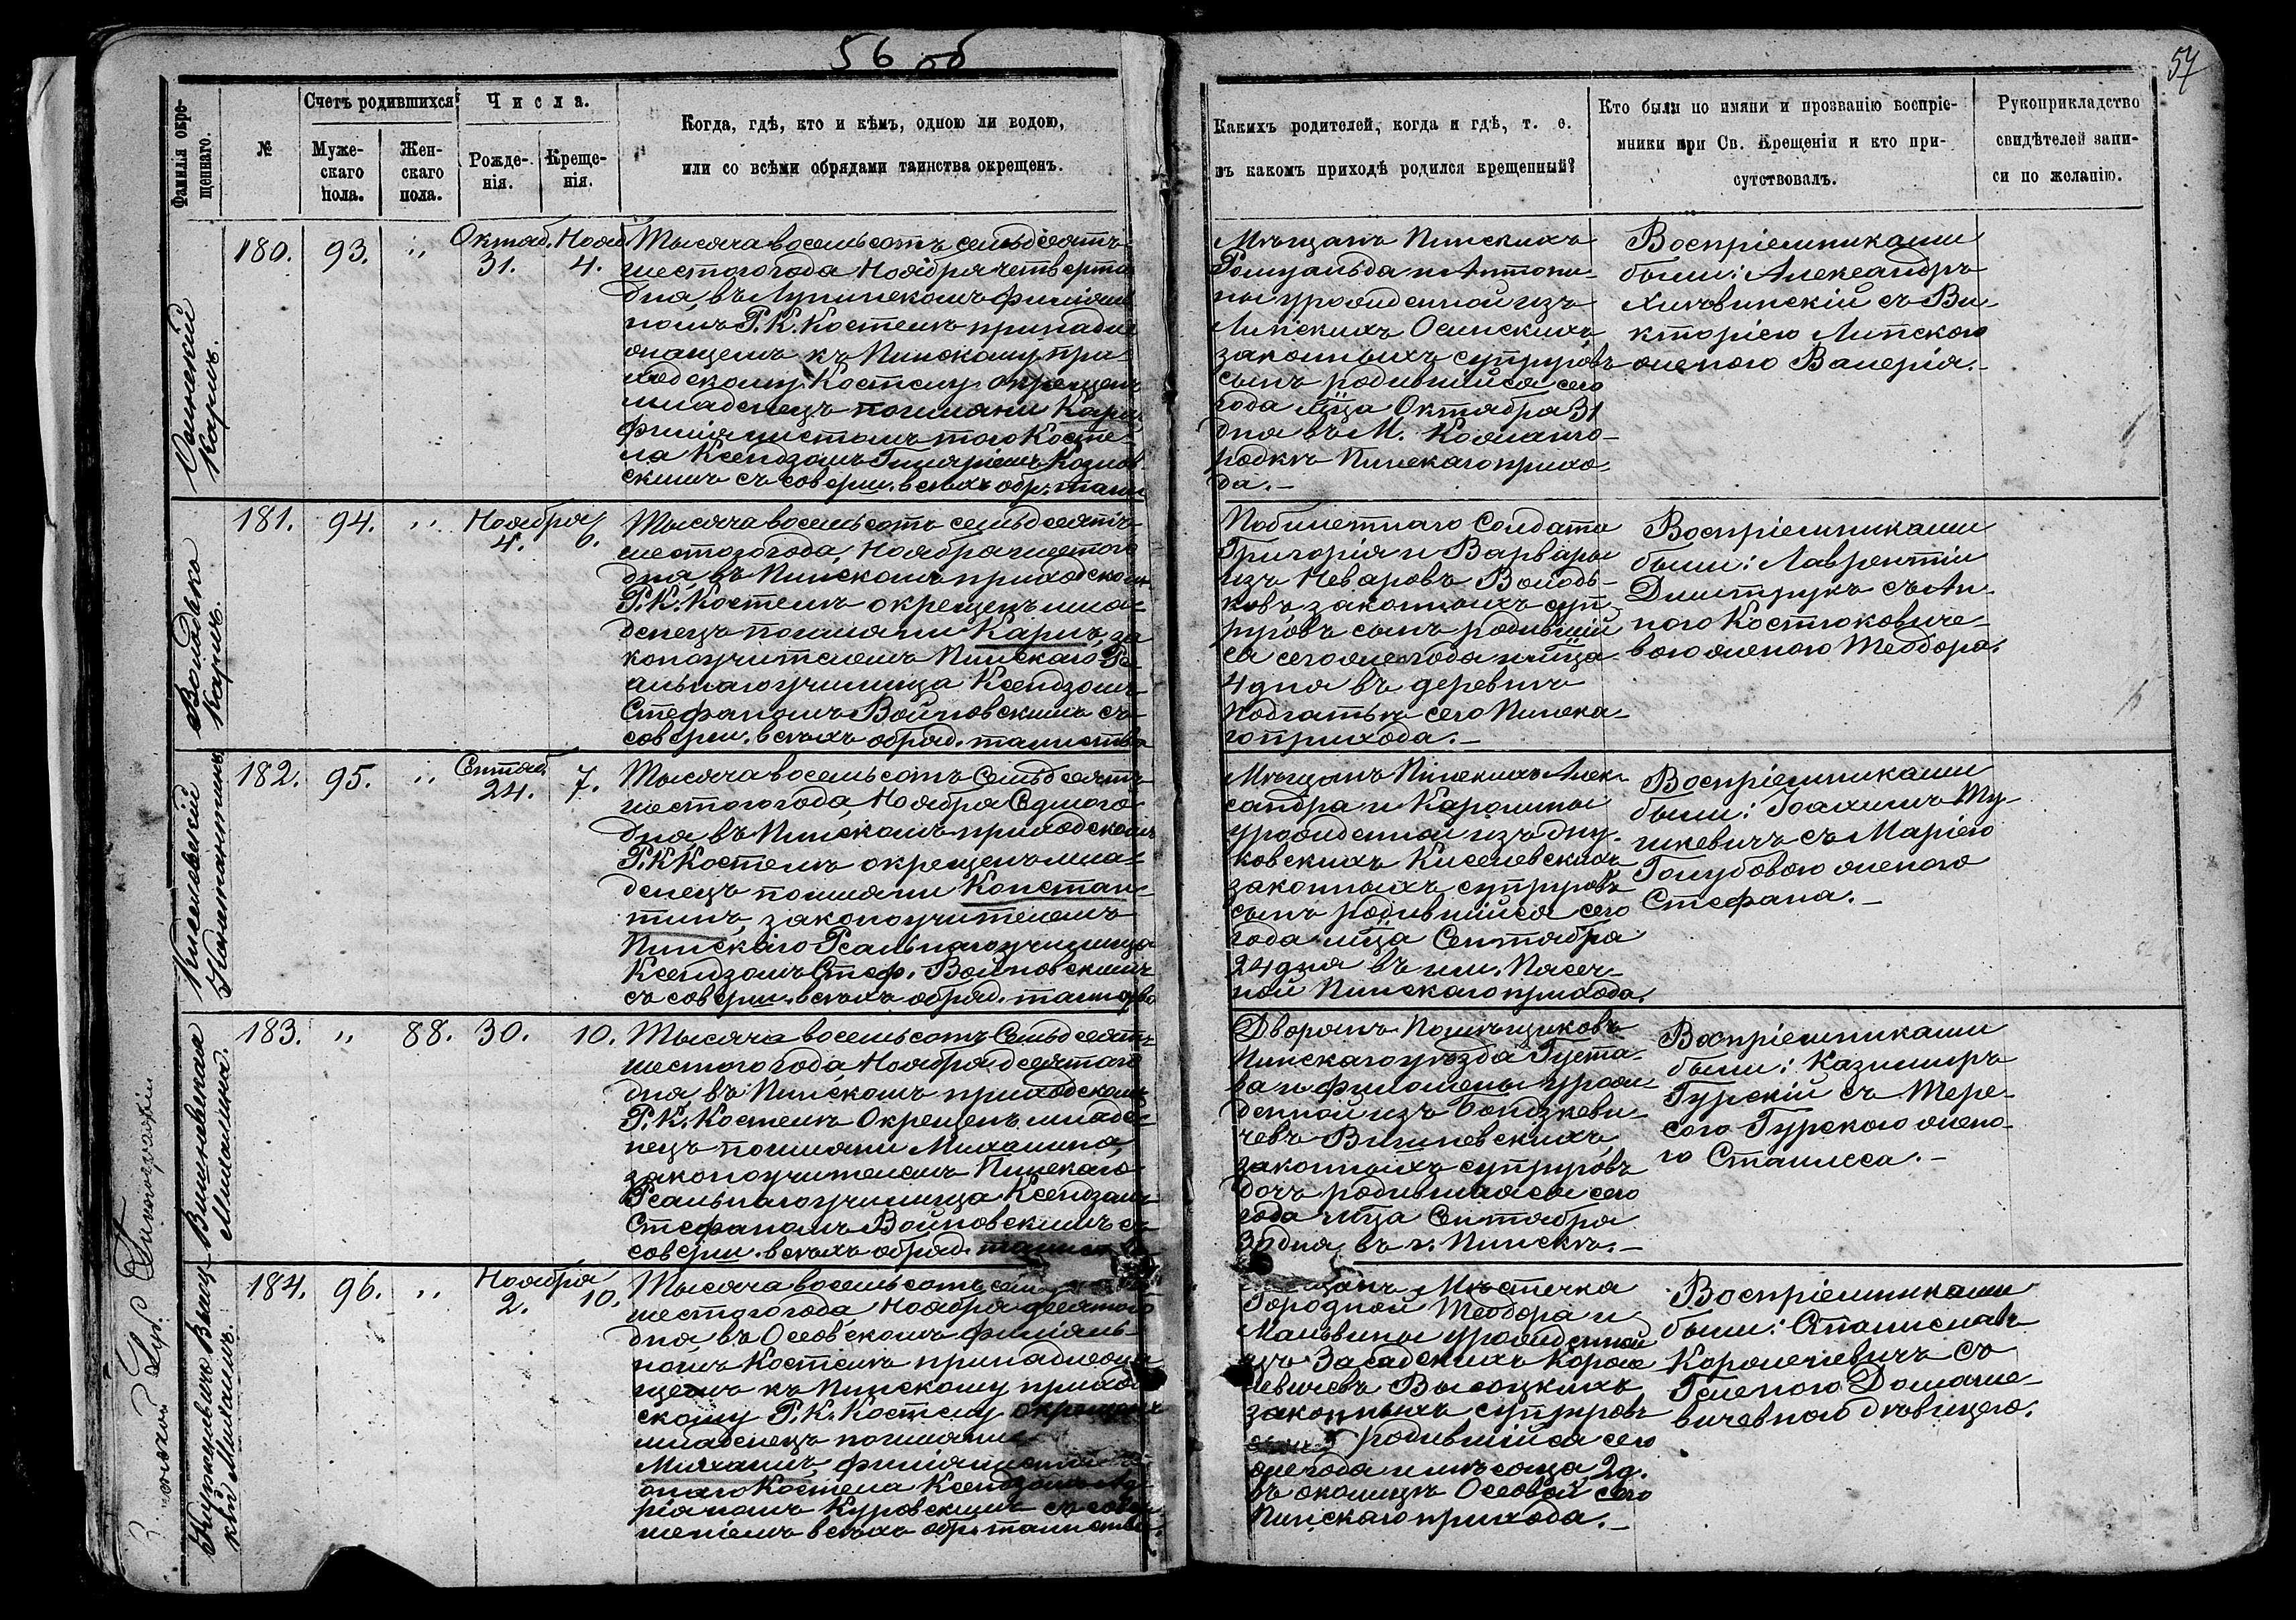 56 об
57
Фамилія окре-
щеннаго.
№
Счетъ родившихся
Муже-
скаго
пола.
Жен-
скаго
пола.
Числа.
Рожде-
нія.
Креще-
нія.
Когда, гдѣ, кто и кѣмъ, одною ли водою,
или со всѣми обрядами таинства окрещенъ.
Какихъ родителей, когда и гдѣ, т. е.
въ какомъ приходѣ родился крещенный?
Кто были по имяни и прозванію воспріе-
мники при Св. Крещеніи и кто при-
сутствовалъ.
Рукоприкладство
свидѣтелей запи-
си по желанію.
Осинскій
Карлъ.
180. 93. "
Октяб. Нояб.
31. 4.
Тысяча восемьсотъ семьдесятъ
шестого года Ноября четверта
дня, въ Лунинскомъ филіаль
номъ Р. К. Костелѣ принадле
жащемъ къ Пинскому при-
ходскому Костелу окрещенъ
младенецъ по имяни Карлъ,
филіялистомъ того Косте-
ла Ксендзомъ Гиляріемъ Козлов
скимъ съ соверш. всѣхъ обр. таин
Мѣщанъ Пинскихъ
Ромуальда и Антони-
ны урожденной изъ
Липскихъ Осинскихъ
законныхъ супруговъ
сынъ родившійся сего
года м̃ца Октября 31
дня въ М. Кожанго-
родкѣ Пинскаго прихо-
да.—
Воспріемниками
были: Александръ
съ Ви-
кторіею Липскою
женою Валерія.—
Володько
Карлъ.
181. 94. "
Ноября
4. 6.
Тысяча восемьсотъ семьдесятъ
шестого года, Ноября шестого
дня, въ Пинскомъ приходскомъ
Р. К. Костелѣ окрещенъ мла-
денецъ по имяни Карлъ, за
коноучителемъ Пинскаго Ре
альнаго училища Ксендзомъ
Стефаномъ Войновскимъ съ
соверш. всѣхъ обряд. таинства
Побилетнаго Солдата
Григорія и Варвары
изъ Неваровъ Володь-
ковъ законныхъ суп-
руговъ сынъ родившій
ся сего же года и м̃ца
4 дня въ деревнѣ
сего Пинска-
го прихода.—
Воспріемниками
были: Лаврентій
Дмитрукъ съ Ан-
ною Костюковиче-
вою женою Теодора.
Киселевскій
Константинъ
182. 95. "
Сентяб.
24. 7.
Тысяча восемьсотъ семьдесятъ
шестого года, Ноября Седмого
дня, въ Пинскомъ приходскомъ
Р. К. Костелѣ окрещенъ мла-
денецъ по имяни Констан-
тинъ, законоучителемъ
Пинскаго Реальнаго училища
Ксендзомъ Стеф. Войновскимъ
съ соверш. всѣхъ обряд. таинства
Мѣщанъ Пинскихъ Алек-
сандра и Каролины
урожденной изъ
Киселевскихъ
законныхъ супруговъ
сынъ родившійся сего
года м̃ца Сентября
24 дня въ им. Пасеч-
ной Пинскаго прихода.
Воспріемниками
были: Іоахимъ
съ Маріею
Голубовою женою
Стефана.—
Вишневская
Михалина.
183. " 88. 30. 10.
Тысяча восемьсотъ семьдесятъ
шестого года Ноября десятого
дня, въ Пинскомъ приходскомъ
Р. К. Костелѣ Окрещенъ младе-
нецъ по имяни Михалина,
законоучителемъ Пинскаго
Реальнаго училища Ксендзомъ
Стефаномъ Войновскимъ съ
соверш. всѣхъ обряд. таинства
Дворянъ Помѣщиковъ
Пинскаго уѣзда Густа-
ва и Филомены урож
денной изъ
Вишневскихъ,
законныхъ супруговъ
дочь родившаяся сего
года м̃ца Сентября
30 дня, въ г. Пинскѣ.—
Воспріемниками
были: Казимиръ
Гурскій съ Тере-
сою Гурскою жено-
ю
Высоц-
кій Михаилъ.
184. 96. "
Ноября
2. 10.
Тысяча восемьсотъ
шестого года, Ноября десятого
дня, въ Осовскомъ филіаль-
номъ Костелѣ принадлежа
щемъ къ Пинскому приход
скому Р. К. Костелу окрещенъ
младенецъ по имяни
Михаилъ,
Костела Ксендзомъ Ад-
ріаномъ Куровскимъ съ совер
шеніемъ всѣхъ обр. таинства.
Мѣстечка
Городной Теодора и
Мальвины урожденной
изъ Засадскихъ Короле
левичевъ Высоцкихъ
законныхъ супруговъ
родившійся сего
же года и мѣсяца, 2 д.
въ околицѣ Осовой сего
Пинскаго прихода.—
Воспріемниками
были: Станиславъ
Королевичъ съ
Геленою Домаше-
вичевною дѣвицею.
Губ. Типографіи